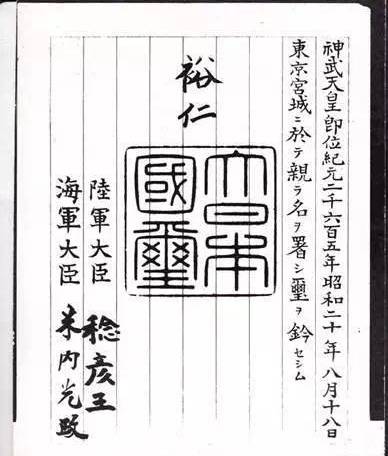 神武天皇卽位紀元二千六百五年昭和二十年八月十八日
東京宮城ニ於テ親ラ名ヲ署シ璽ヲ鈐セシム
裕仁
大日本
國璽
陸軍大臣 稔彦王
海軍大臣 米内光政